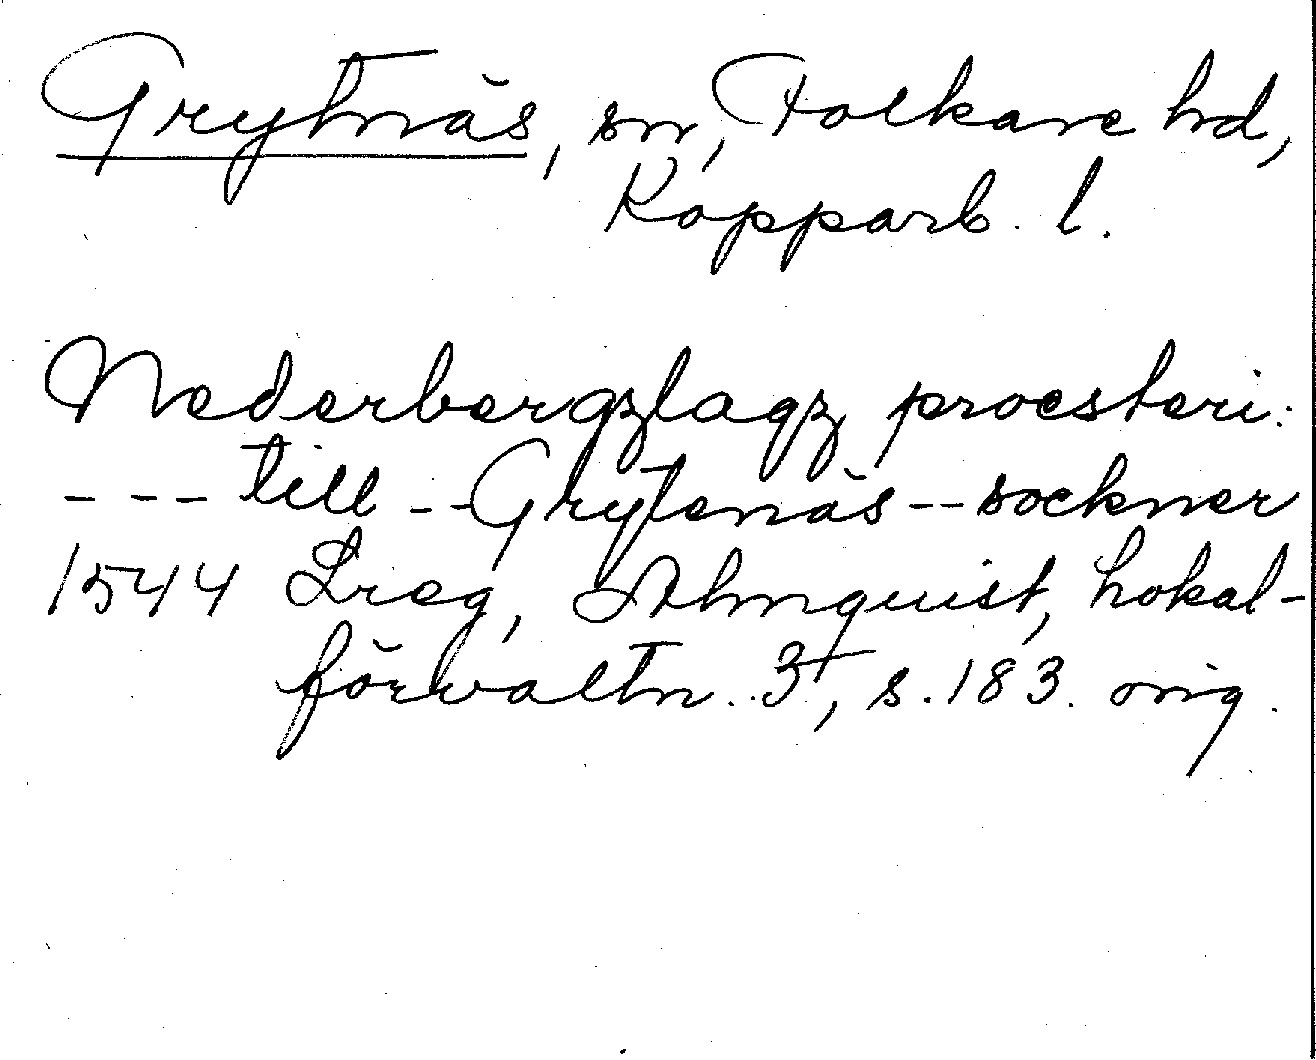 Grytnäs, sn, Folkare hd,
Kopparb. l.
Nederbergzlagz proesteri:
--- till -- Grytenäs -- sockner
1544 Lreg, Almquist, Lokal-
förvaltn. 3, s. 183. orig.